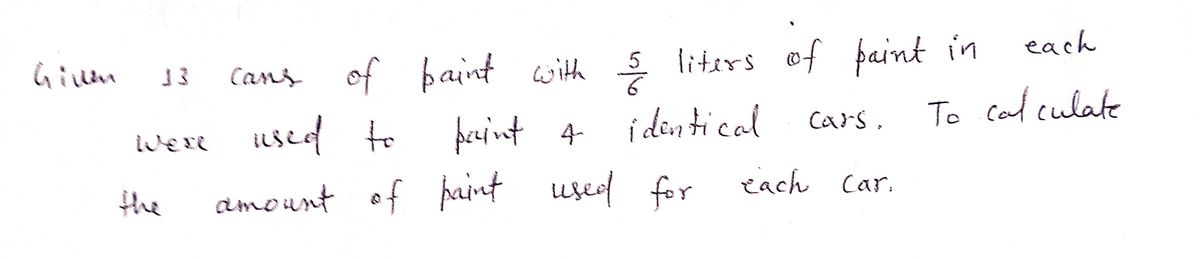 Given 13 cans of paint with 5/6 liters of paint in each
were used to paint 4 identical cars. To calculate
the amount of paint used for each car.